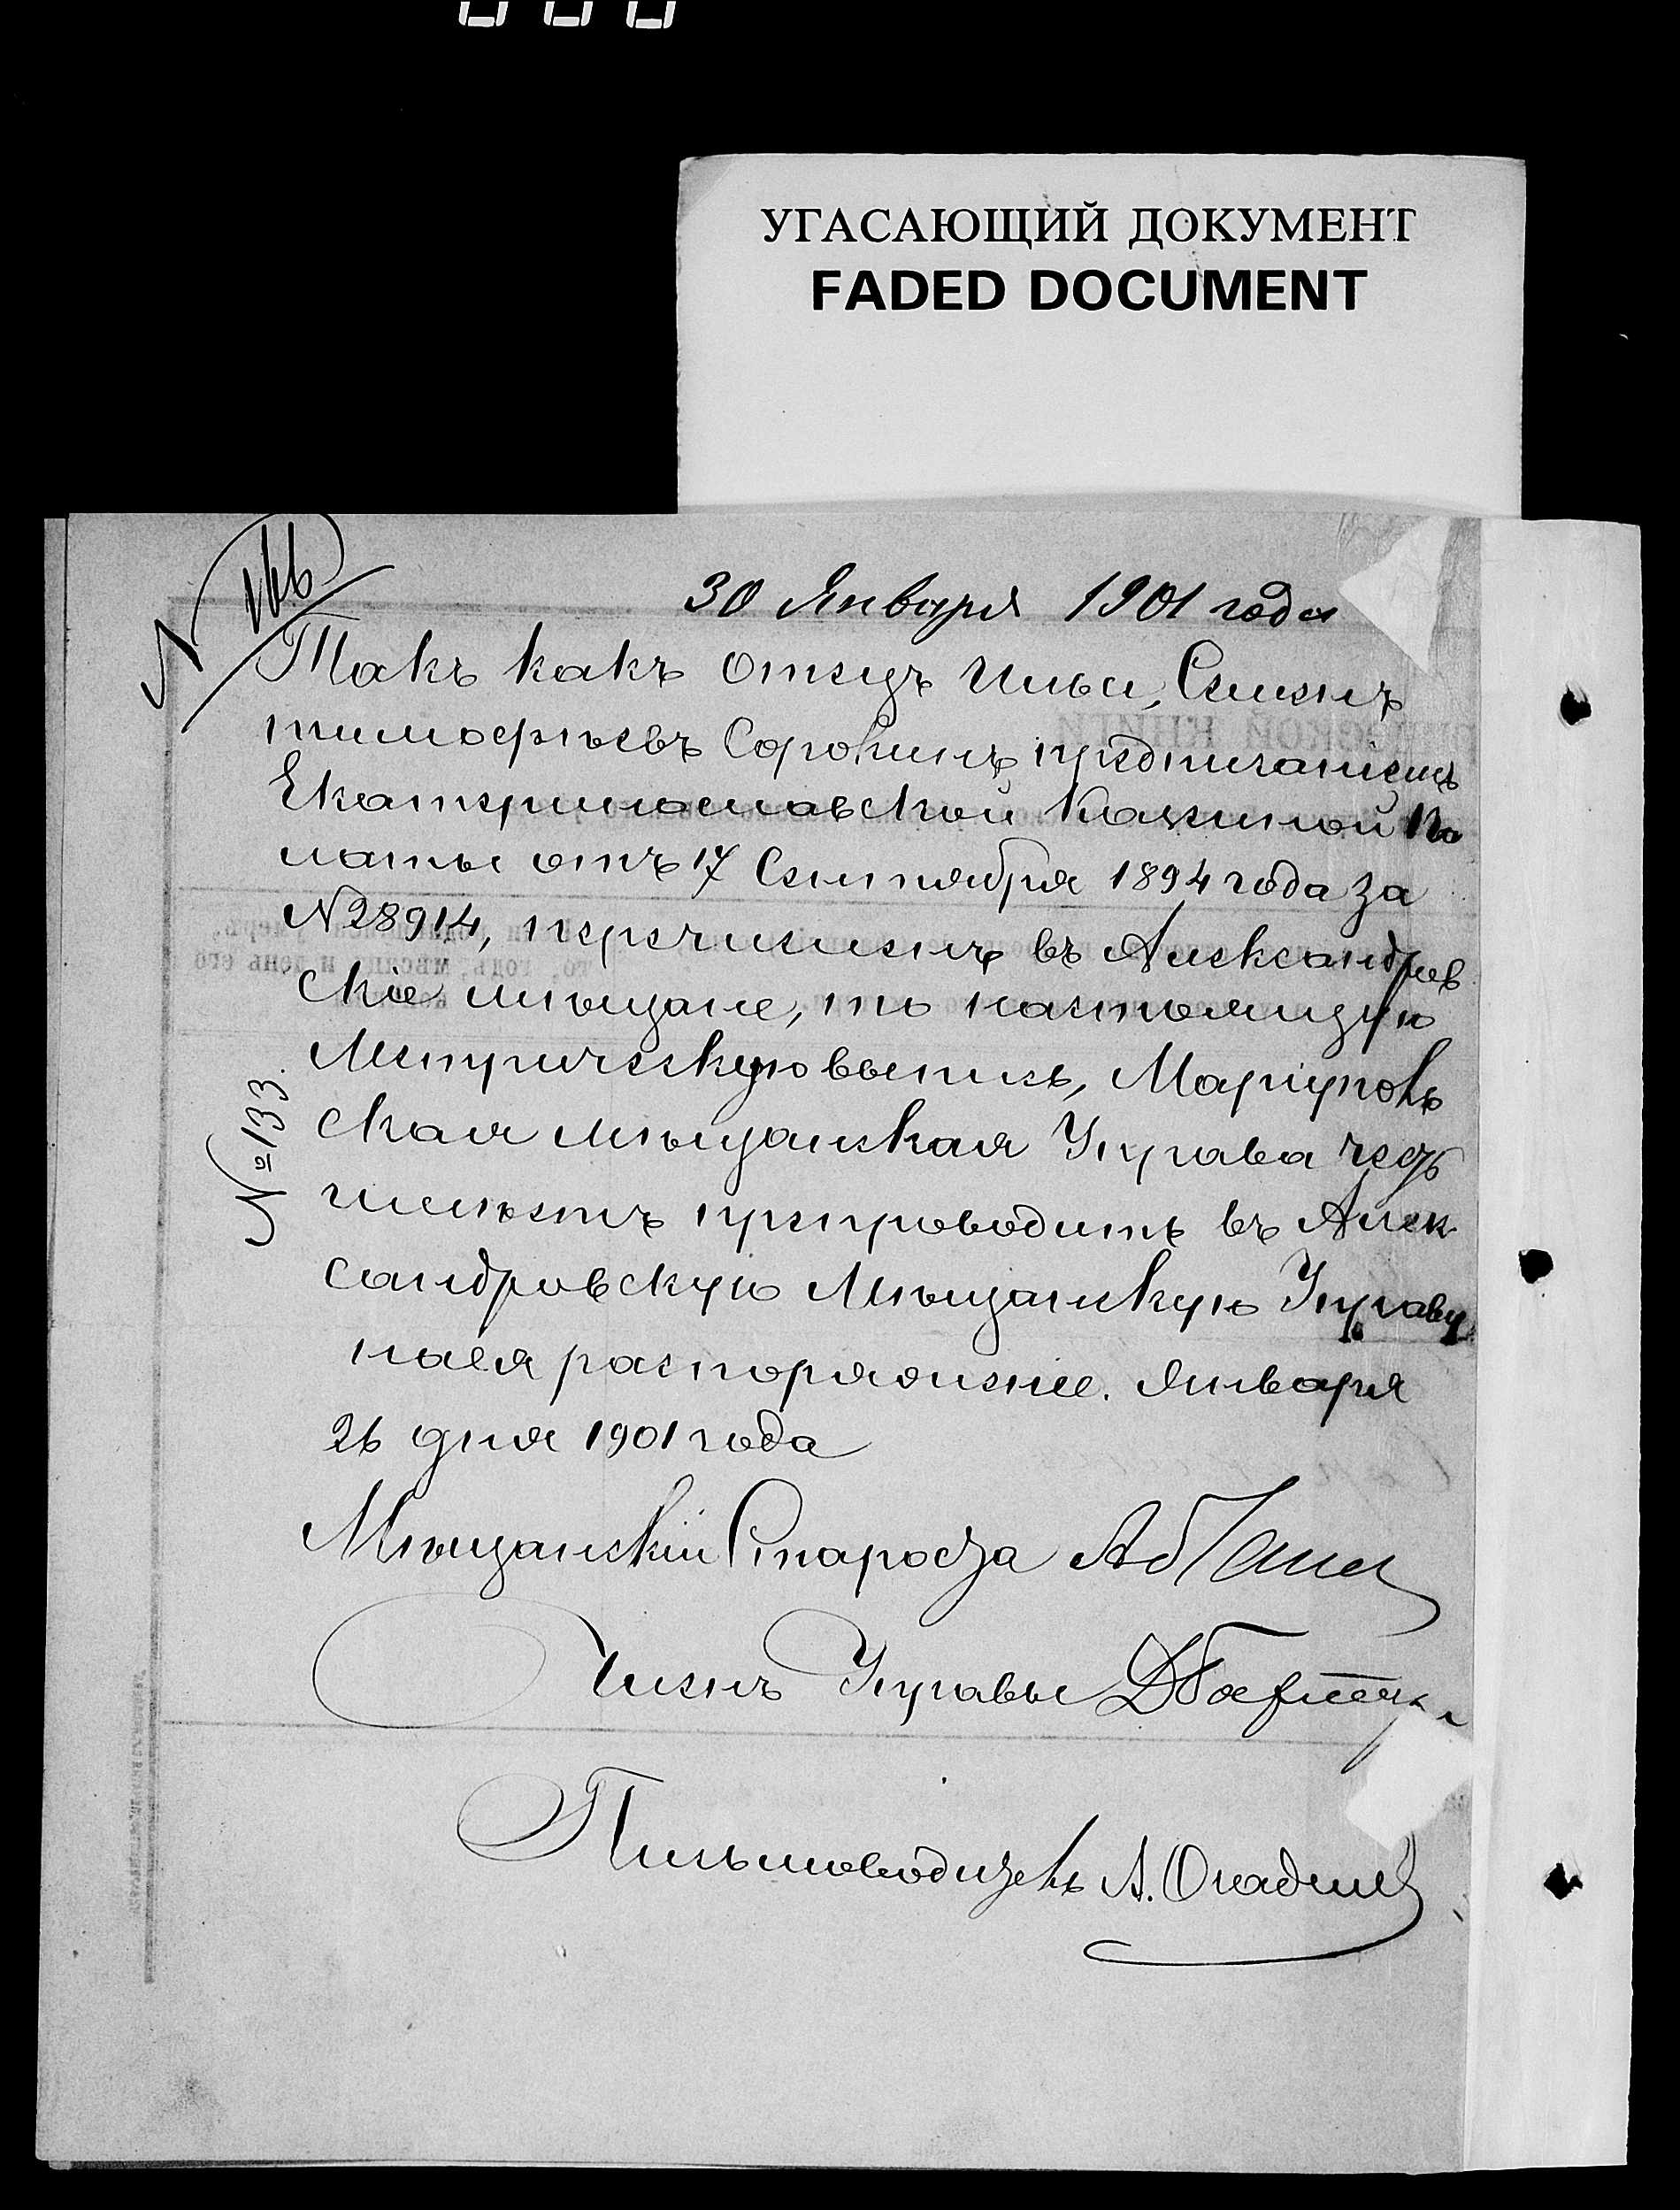 УГАСАЮЩИЙ ДОКУМЕНТ
FADED DOCUMENT
30 Января 1901 года
Такъ какъ отецъ Ильи, Семенъ
тимофѣевъ Сорокинъ, предписаніемъ
Екатеринославской Казенной Па
латы отъ 17 Сентября 1894 года за
№ 28914, перечисленъ въ Александров
скіе мѣщане, то настоящую
Метрическую выпись, Маріуполь
ская мѣщанская Управа честь
имѣетъ препроводить въ Алек
сандровскую Мѣщанскую Управу
на ея распоряженіе. Января
26 дня 1901 года
№ 133.
Мѣщанскій Староста
Членъ Управы
Письмоводитель А.